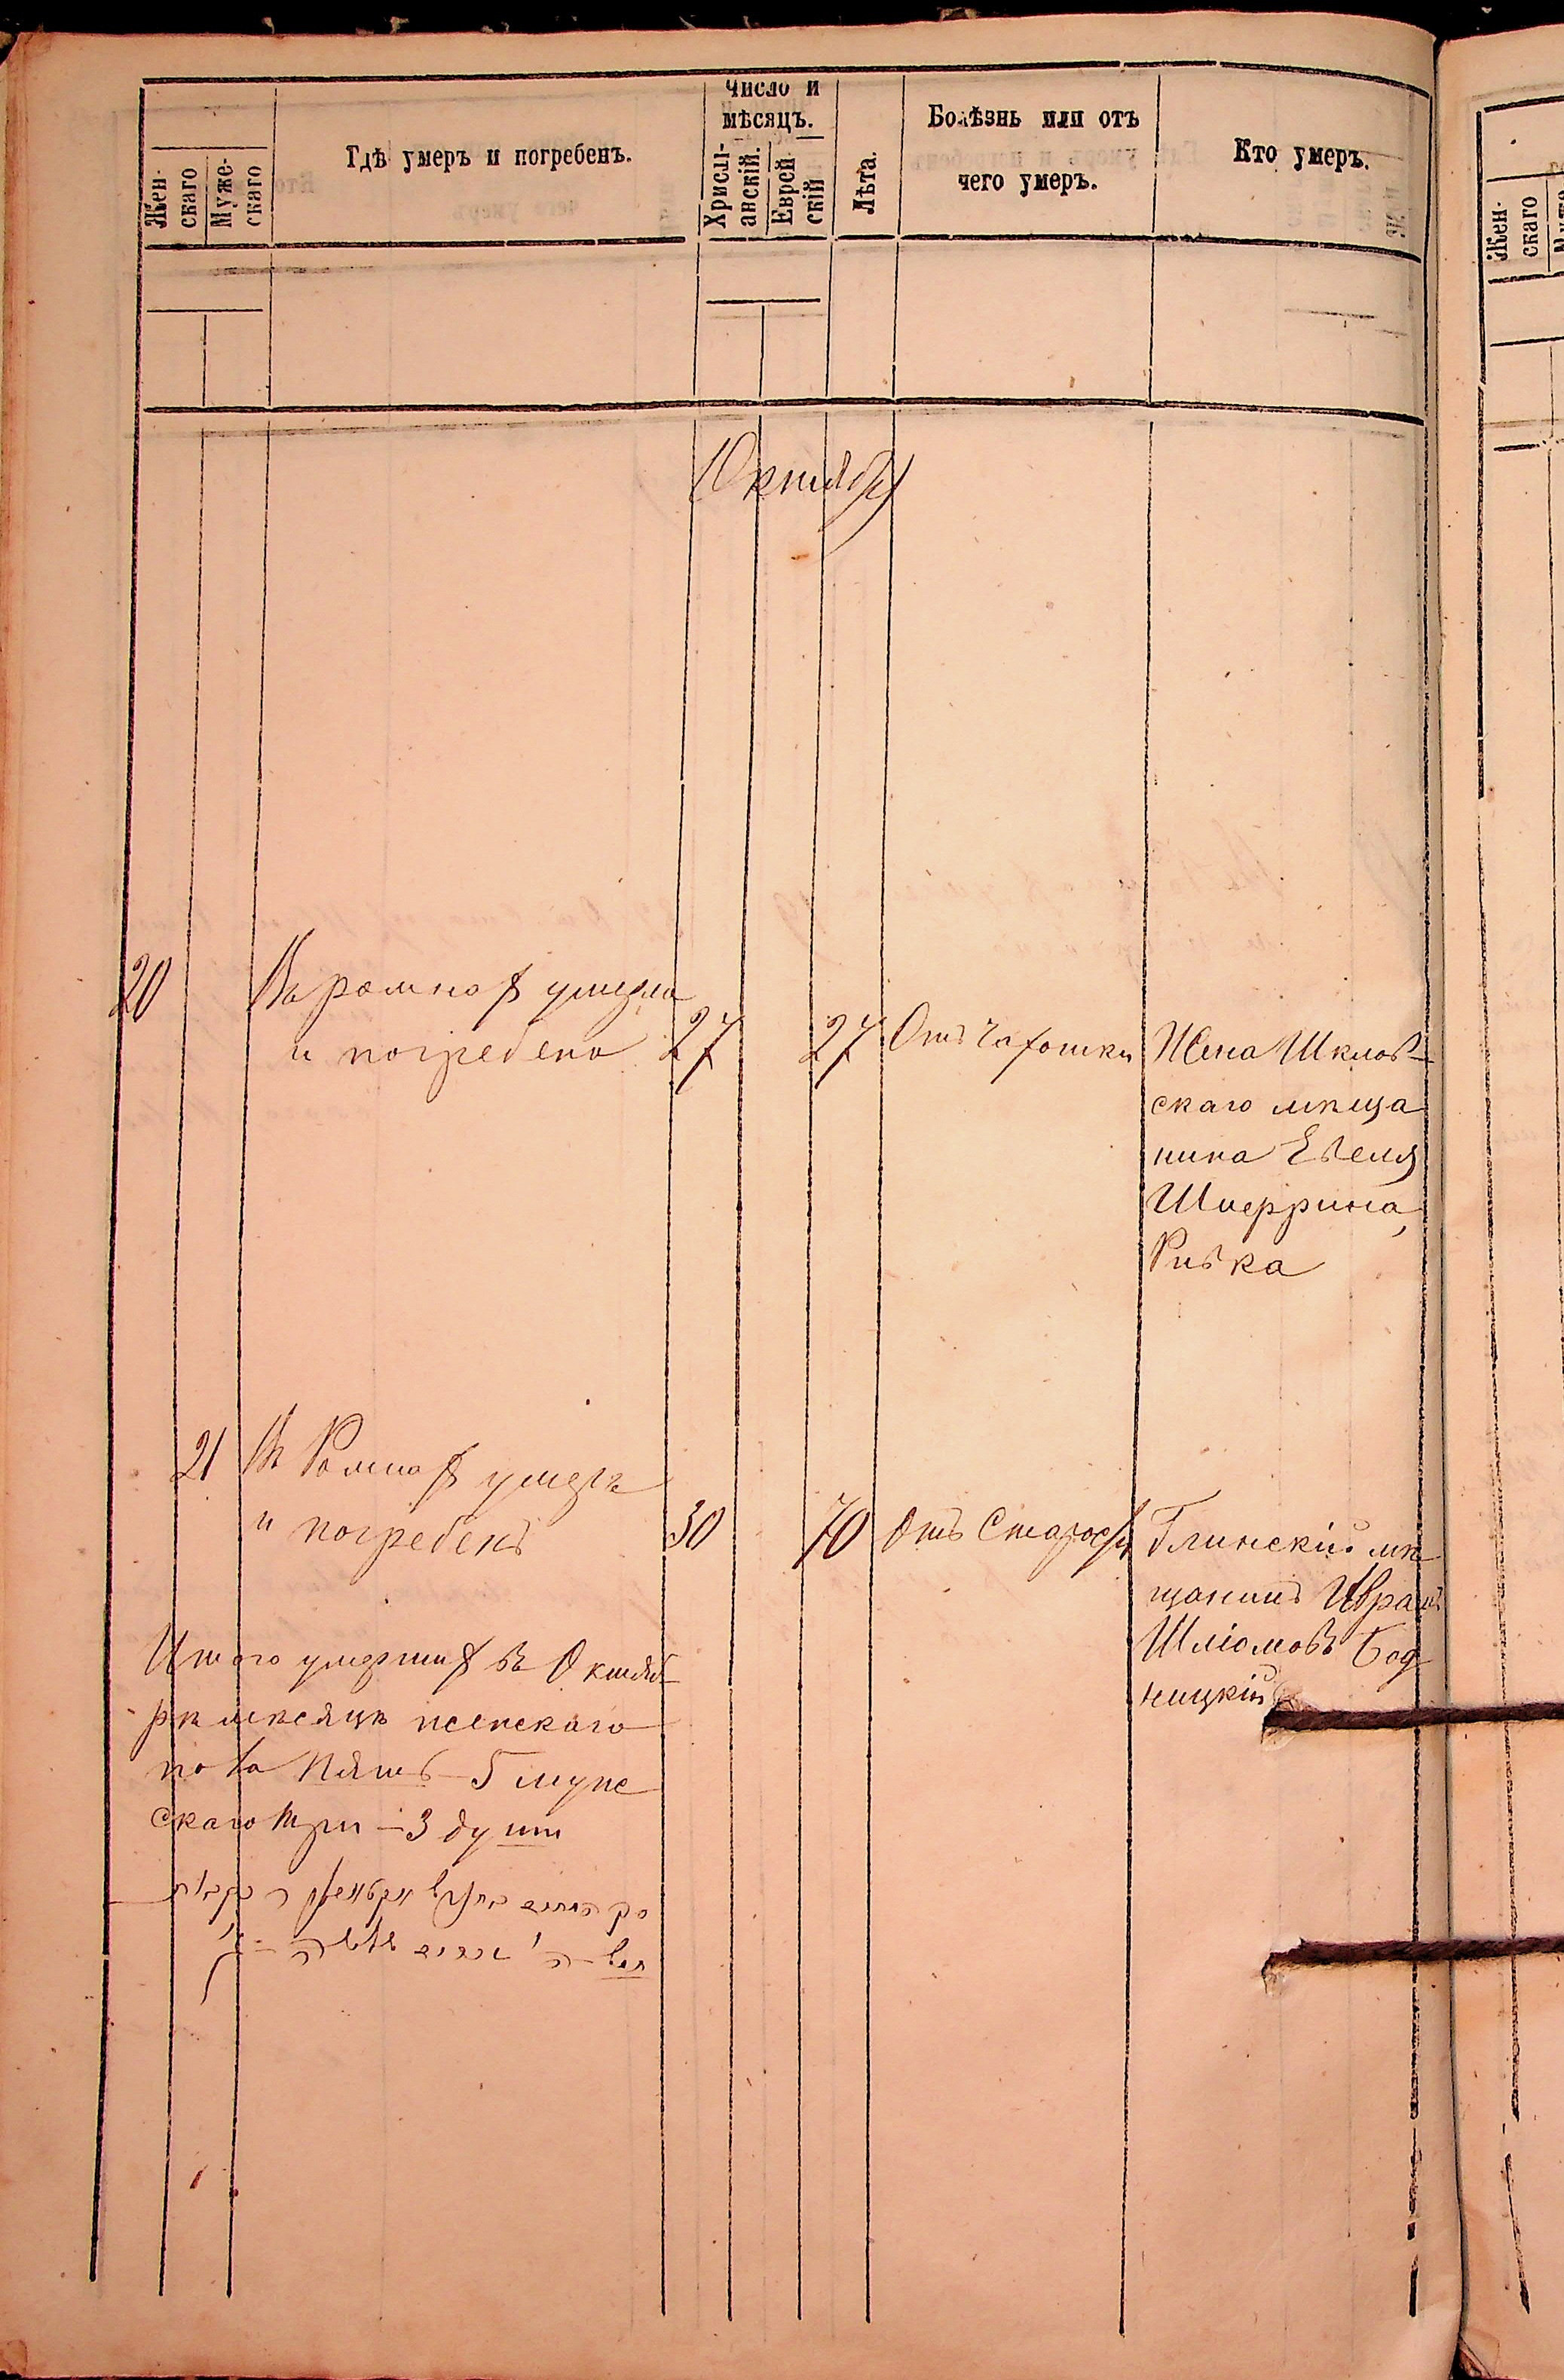 Жен-
скаго
Муже-
скаго
Гдѣ умеръ и погребенъ.
Число и
мѣсяцъ.
Христі-
анскій.
Еврей
скій
Лѣта.
Болѣзнь или отъ
чего умеръ.
Кто умеръ.
Октябрь
20
Въ Ромнах умерла
и погребена
27
27
Отъ Чахотки
Жена Шклов-
скаго мѣща
нина Евеля
Шнеррина,
Ривка
21
Въ Ромнах умеръ
и погребенъ
30
70
Отъ Старости
Глинскій мѣ
щанинъ Аврамъ
Шліомовъ Бод
ницкій
Итого умерших въ Октяб-
рѣ месяцѣ женскаго
пола Пять - 5 муже
скаго три - 3 души
Жен-
скаго